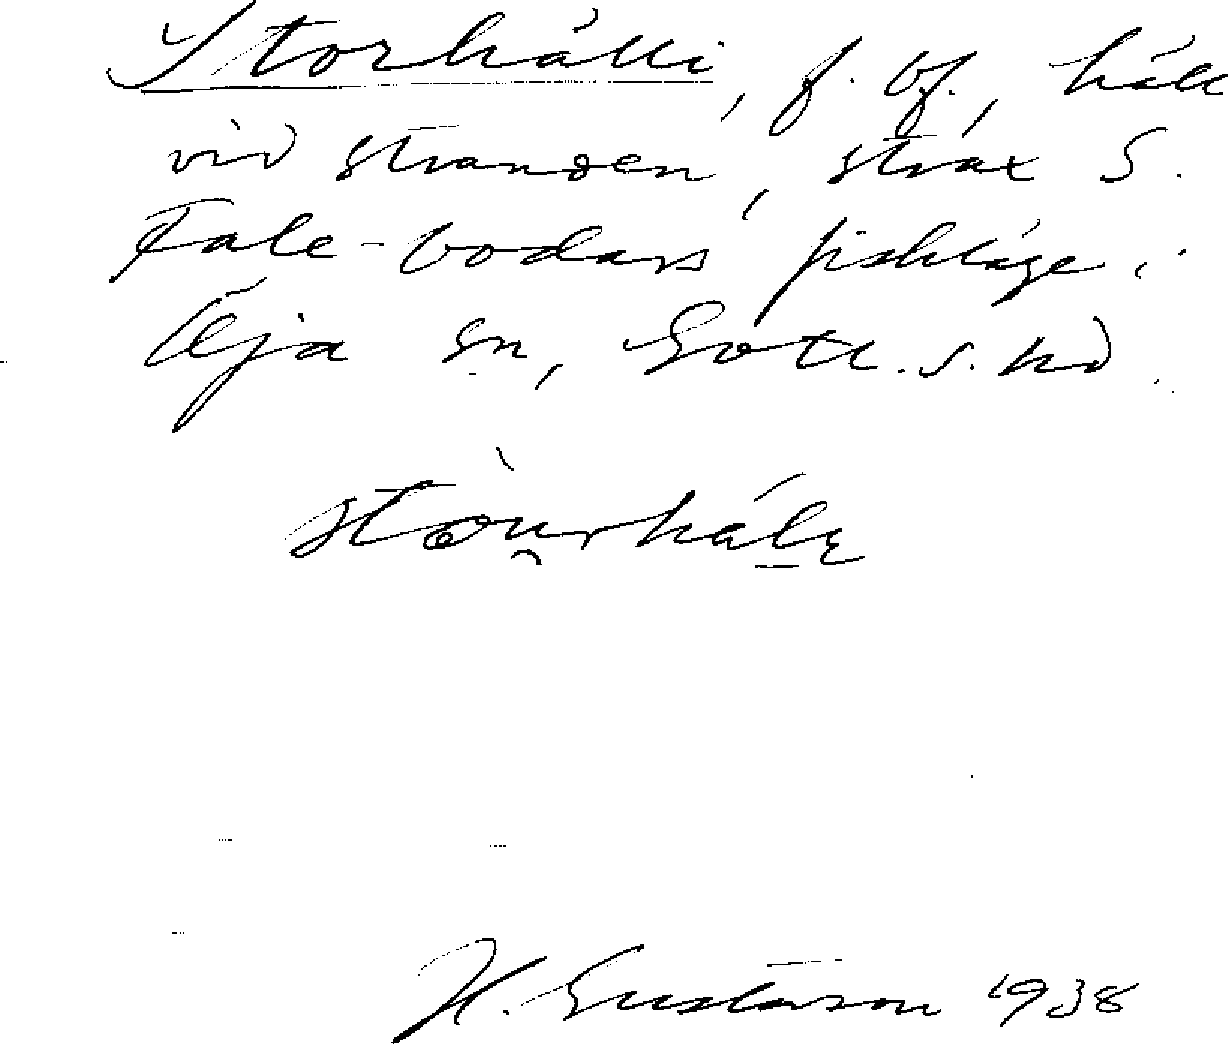 Storhälli, f. bf., häll
vid stranden, strax S.
Fale-bodars fiskläge i
Öja sn, Gotl. s. hd.
stòu̯rhálę
H. Gustavson 1938